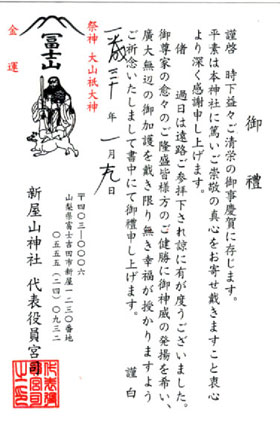 御禮
謹啓　時下益々ご清栄の御事慶賀に存じます。
平素は本神社に篤いご崇敬の真心をお寄せ戴きますこと衷心
より深く感謝申し上げます。
偖　過日は遠路ご参拝下され諒に有が度うございました。
御尊家の愈々のご隆盛皆様方のご健勝に御神威の発揚を希い、
廣大無辺の御加護を戴き限り無き幸福が授かりますよう
ご祈念いたしまして書中にて御禮申し上げます。
謹白
年一月九日
〒四〇三―〇〇〇六
山梨県富士吉田市新屋一二三〇番地
〇五五五(二四)〇九三二
新屋山神社　代表役員宮司
祭神　大山祇大神
冨士山
金運